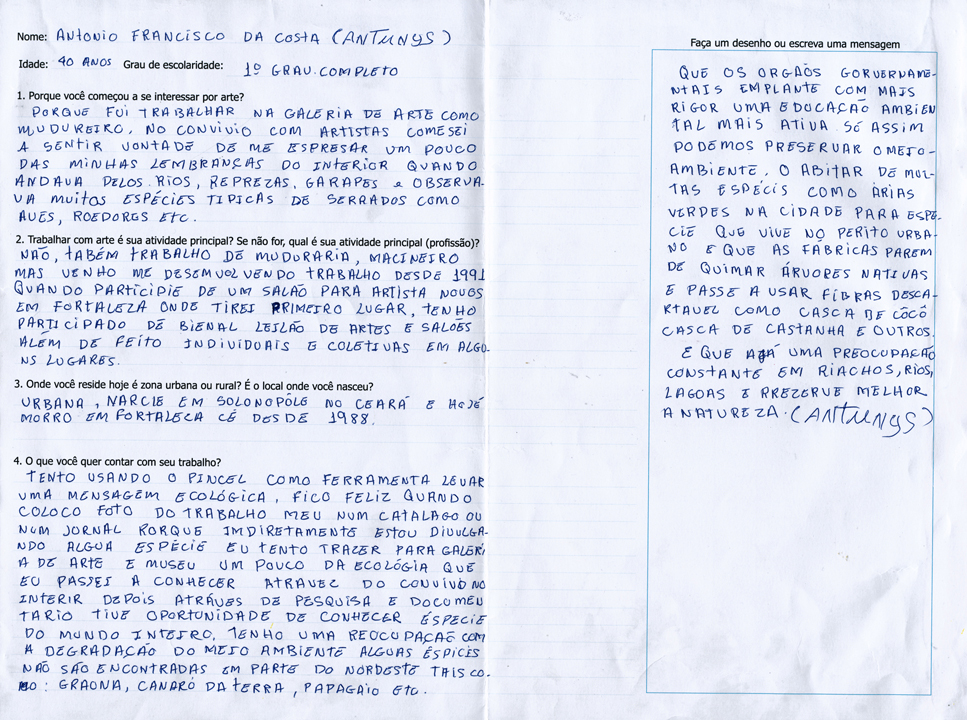 Nome: ANTONIO FRANCISCO DA COSTA (ANTUNYS)
Idade: 40 ANOS Grau de escolaridade: 1º GRAU.COMPLETO
1. Porque você começou a se interessar por arte?
PORQUE FUI TRABALHAR NA GALERIA DE ARTE COMO
MUDUREIRO, NO CONVIVIO COM ARTISTAS COMESEI
A SENTIR VONTADE DE ME ESPRESAR UM POUCO
DAS MINHAS LEMBRANÇAS DO INTERIOR QUANDO
ANDAVA PELOS RIOS, REPREZAS, GARAPES e OBSERVA-
VA MUITOS ESPÉCIES TIPICAS DE SERRADOS COMO
AVES, ROEDORES ETC.
2. Trabalhar com arte é sua atividade principal? Se não for, qual é sua atividade principal (profissão)?
NÃO, TABÉM TRABALHO DE MUDURARIA, MACINEIRO
MAS VENHO ME DESEMVOLVENDO TRABALHO DESDE 1991
QUANDO PARTICIPIE DE UM SALÃO PARA ARTISTA NOVOS
EM FORTALEZA ONDE TIREI PRIMEIRO LUGAR, TENHO
PARTICIPADO DE BIENAL LEILÃO DE ARTES E SALÕES
ALÉM DE FEITO INDIVIDUAIS E COLETIVAS EM ALGU-
NS LUGARES.
3. Onde você reside hoje é zona urbana ou rural? É o local onde você nasceu?
URBANA, NARCIE EM SOLONOPÓLE NO CEARÁ E HOJÉ
MORRO EM FORTALECA CÉ DESDE 1988.
4. O que você quer contar com seu trabalho?
TENTO USANDO O PINCEL COMO FERRAMENTA LEVAR
UMA MENSAGEM ECOLÓGICA, FICO FELIZ QUANDO
COLOCO FOTO DO TRABALHO MEU NUM CATALAGO OU
NUM JORNAL PORQUE IMDIRETAMENTE ESTOU DIVULGA-
NDO ALGUA ESPÉCIE EU TENTO TRAZER PARA GALERI
A DE ARTE E MUSEU UM POUCO DA ECOLÓGIA QUE
EU PASSEI A CONHECER ATRAVEZ DO CONVIVO NO
INTERIR DEPOIS ATRÁVES DE PESQUISA E DOCUMEN
TARIO TIVE OPORTUNIDADE DE CONHECER ÉSPECIE
DO MUNDO INTEIRO, TENHO UMA REOCUPAÇAÕ COM
A DEGRADAÇÃO DO MEIO AMBIENTE ALGUAS ÉSPICIES
NÃO SÃO ENCONTRADAS EM PARTE DO NORDESTE TAIS CO-
MO: GRAONA, CANARÓ DA TERRA, PAPAGAIO ETC.
Faça um desenho ou escreva uma mensagem
QUE OS ORGAÕS GORVERNAME-
NTAIS EMPLANTE COM MAIS
RIGOR UMA EDUCAÇÃO AMBIEN
TAL MAIS ATIVA. SÓ ASSIM
PODEMOS PRESERVAR O MEIO-
AMBIENTE. O ABITAR DE MUI-
TAS ESPÉCIS COMO ÁRIAS
VERDES NA CIDADE PARA ESPE-
CIE QUE VIVE NO PERITO URBA-
NO E QUE AS FÁBRICAS PAREM
DE QUIMAR ÁRVORES NATIVAS
E PASSE A USAR FÍBRAS DESCA-
RTAVEL COMO CASCA DE CÔCÔ
CASCA DE CASTANHA E OUTROS.
E QUE AJÁ UMA PREOCUPAÇÃO
CONSTANTE EM RIACHOS, RIOS,
LAGOAS E PREZERVE MELHOR
A NATUREZA. (ANTUNYS)